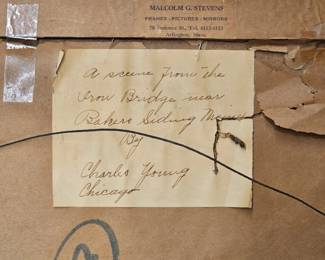 MALCOLM G. STEVENS
FRAMES - PICTURES - MIRRORS
Arlington, Mass.
A scene from the
Iron Bridge near
Bakers Sidney
By
Charles Young
Chicago